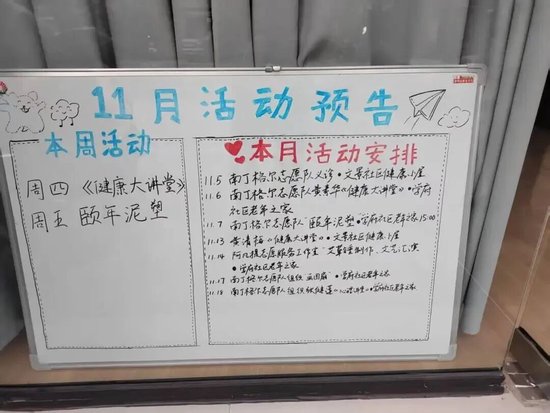 11月活动预告
本周活动
周四《健康大讲堂》
周五 颐年泥塑
本月活动安排
11.5 南丁格尔志愿队义诊·文景社区健康小屋
11.6 南丁格尔志愿队黄秀华《健康大讲堂》·学府
社区老年之家
11.7 南丁格尔志愿队"颐年泥塑"·学府社区老年之家15:00
11.13 黄清梅《健康大讲堂》·文景社区健康小屋
11.14 阿九提志愿服务工作室"艾草锤制作、文艺汇演
·学府社区老年之家
11.17 南丁格尔志愿队组织·学府社区老年之家
11.18 南丁格尔志愿队组织《心理讲堂》·学府社区老年之家